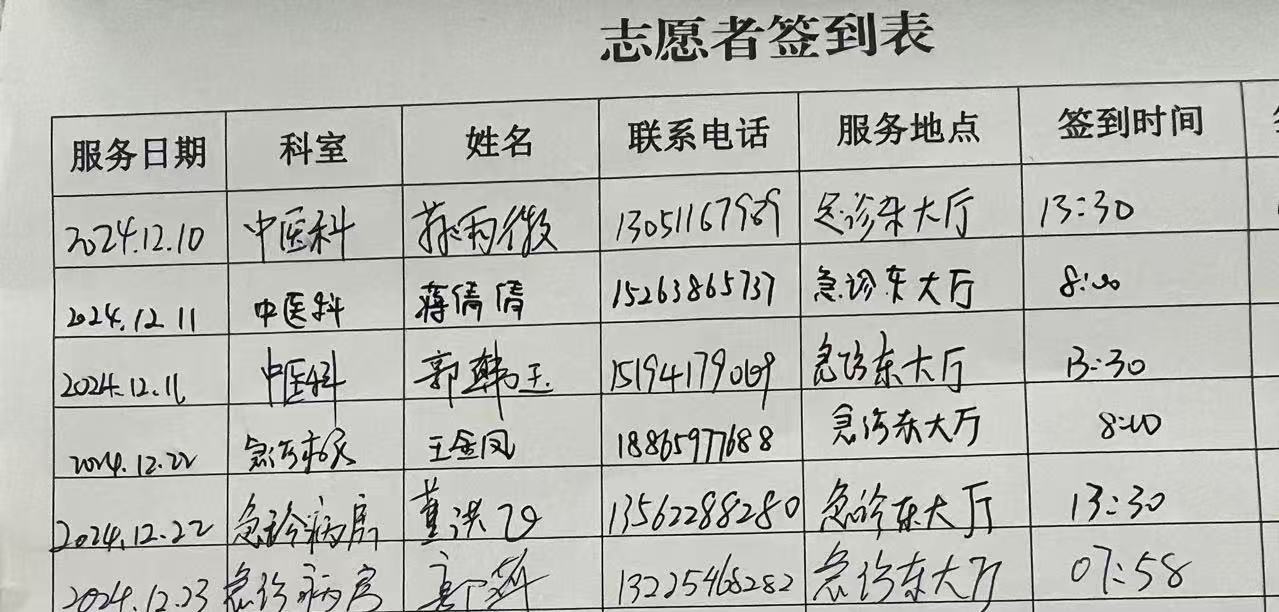 志愿者签到表
服务日期 科室 姓名 联系电话 服务地点 签到时间
2024.12.10 中医科 薛雨薇 13051167989 急诊东大厅 13:30
2024.12.11 中医科 蒋倩倩 15263865737 急诊东大厅 8:00
2024.12.11 中医科 郭韩玉 15194179069 急诊东大厅 13:30
2024.12.22 急诊病房 王金凤 18865977688 急诊东大厅 8:00
2024.12.22 急诊病房 董洪 13562288280 急诊东大厅 13:30
2024.12.23 急诊病房 13225468282 急诊东大厅 07:58